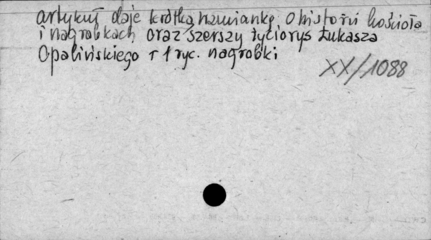 artykuł daje krótką wzmiankę o historii kościoła
i nagrobkach, oraz szerszy życiorys Łukasza
Opalińskiego + 1 ryc. nagrobki
XX/1088